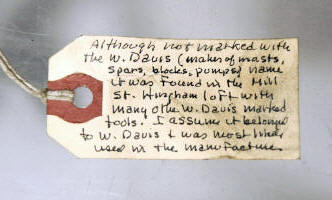 Although not marked with
the W. Davis (maker of masts,
spars, blocks, pumps) name
it was found in the Mill
St. Hingham loft with
many othe W. Davis marked
tools. I assume it belonged
to W. Davis & was most likely
used in the manufacture